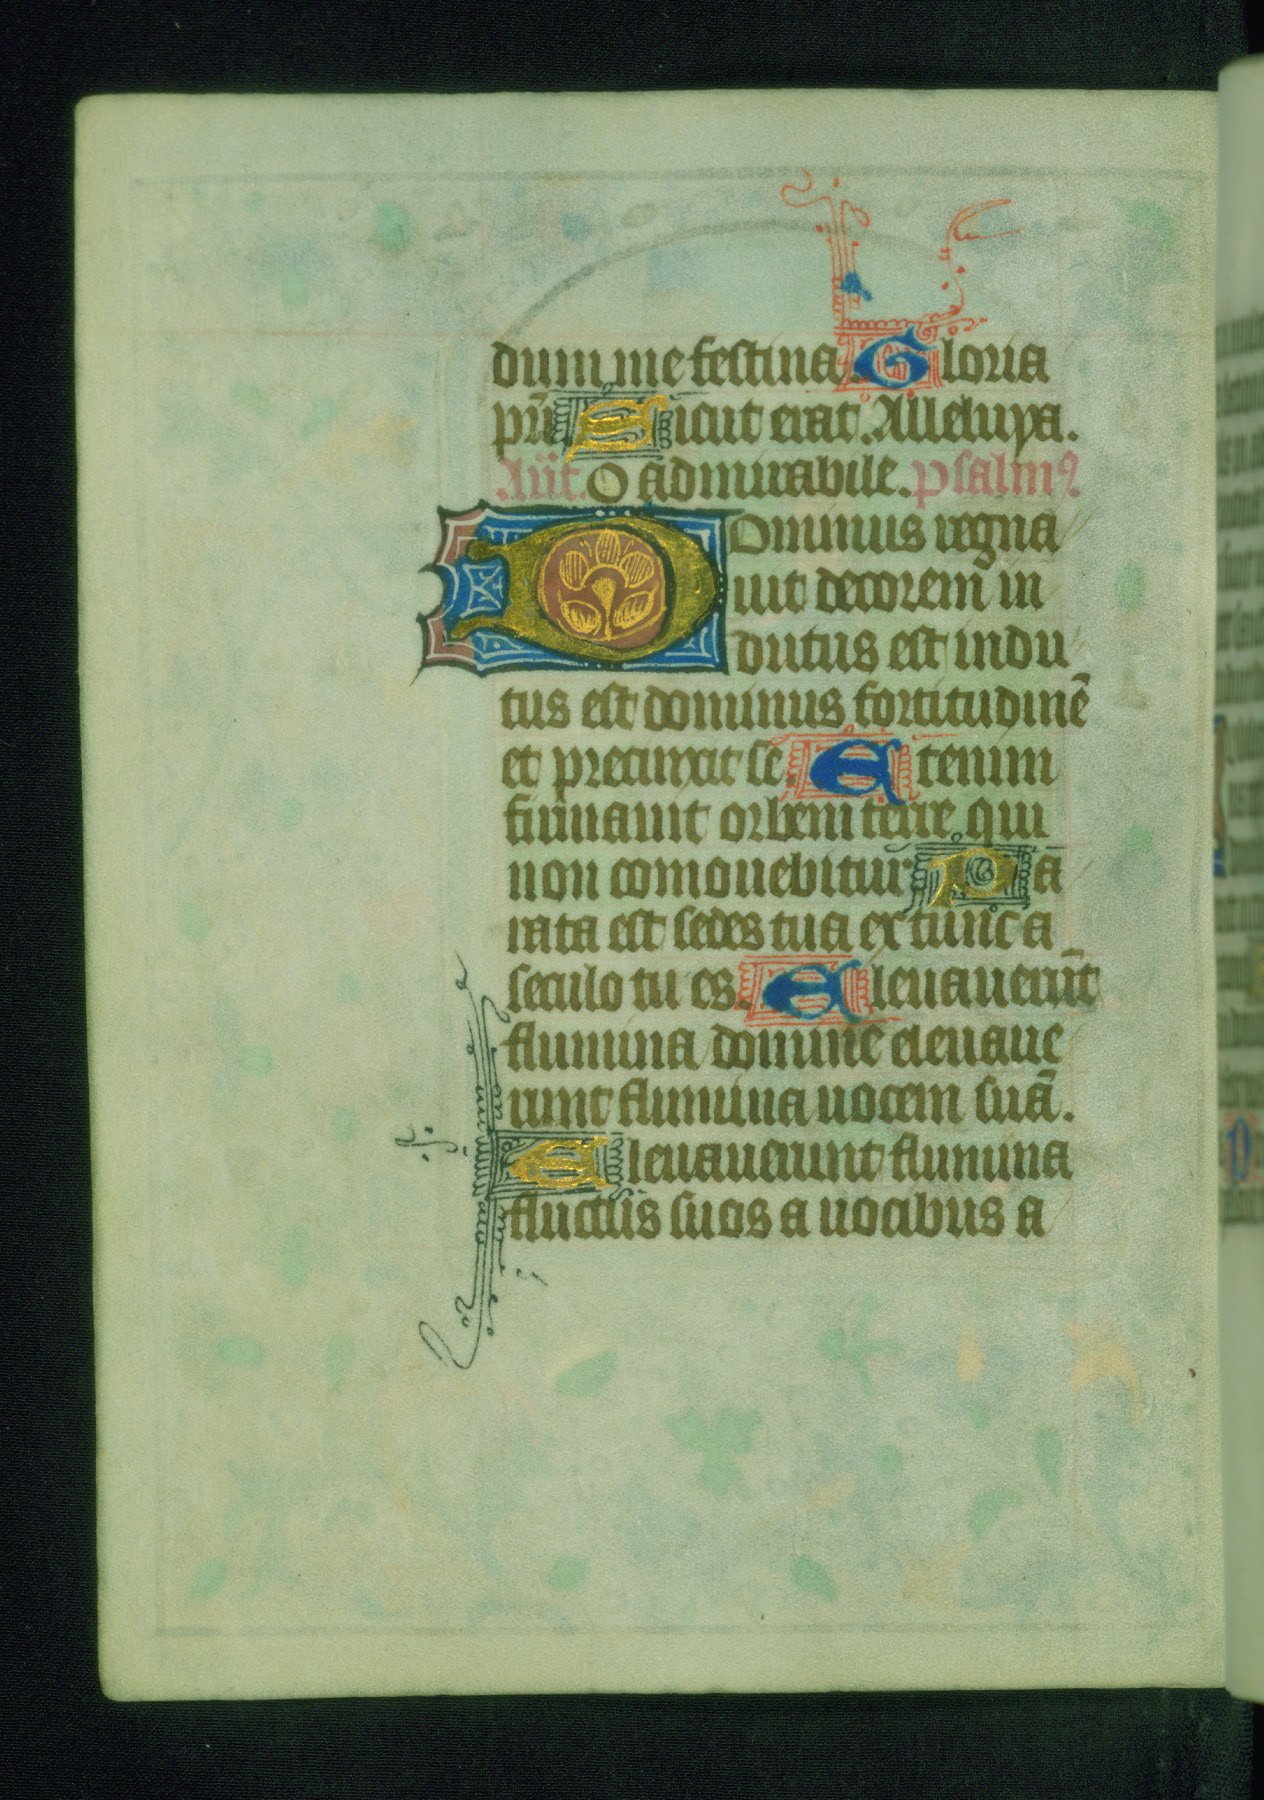 dum me festina. Gloria
pri Sicut erat. Alleluya.
Ant. O admirabile. psalmꝰ
Dominus regna
uit decorem in
dutus est indu
tus est dominus fortitudinē
et precinxit se. Etenim
firmauit orbem terre qui
non comouebitur. Pa
rata est sedes tua ex tunc a
seculo tu es. Eleuauerūt
flumina domine eleuaue
runt flumina uocem suā.
Eleuauerunt flumina
fluctus suos a uocibus a